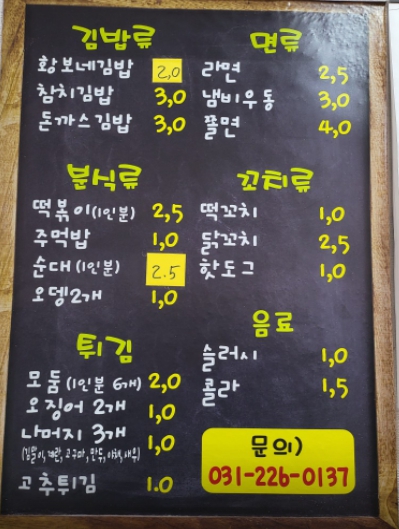 김밥류
황보네김밥 2,0
참치김밥 3,0
돈까스김밥 3,0
면류
라면 2,5
냄비우동 3,0
쫄면 4,0
분식류
떡볶이(1인분) 2,5
주먹밥 1,0
순대(1인분) 2.5
오뎅2개 1,0
꼬치류
떡꼬치 1,0
닭꼬치 2,5
핫도그 1,0
튀김
모둠(1인분 6개) 2,0
오징어 2개 1,0
나머지 3개 1,0
(김말이, 계란, 고구마, 만두, 야채, 새우)
고추튀김 1.0
음료
슬러시 1,0
콜라 1,5
문의)
031-226-0137